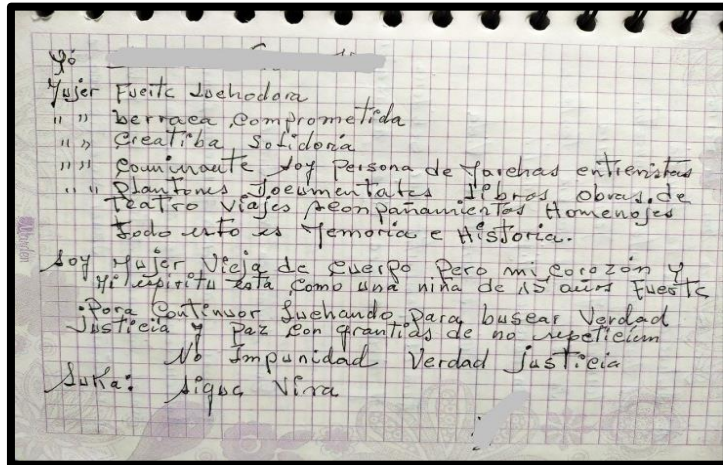 Yo
Mujer Fuerte Luchadora
" " berraca, Comprometida
" " Creatiba, Solidaria
" " Caminante Soy Persona de Marchas entrevistas
" " Plantones Documentales Libros, obras, de
Teatro Viajes Acompañamientos Homenajes
Todo esto es Memoria e Historia.
Soy Mujer Vieja de Cuerpo Pero mi Corazón y
Mi espiritu está como una niña de 15 años Fuerte
Para Continuar Luchando Para buscar Verdad
Justicia y Paz Con grantias de no repeticium
No Impunidad Verdad Justicia
Sigue Viva